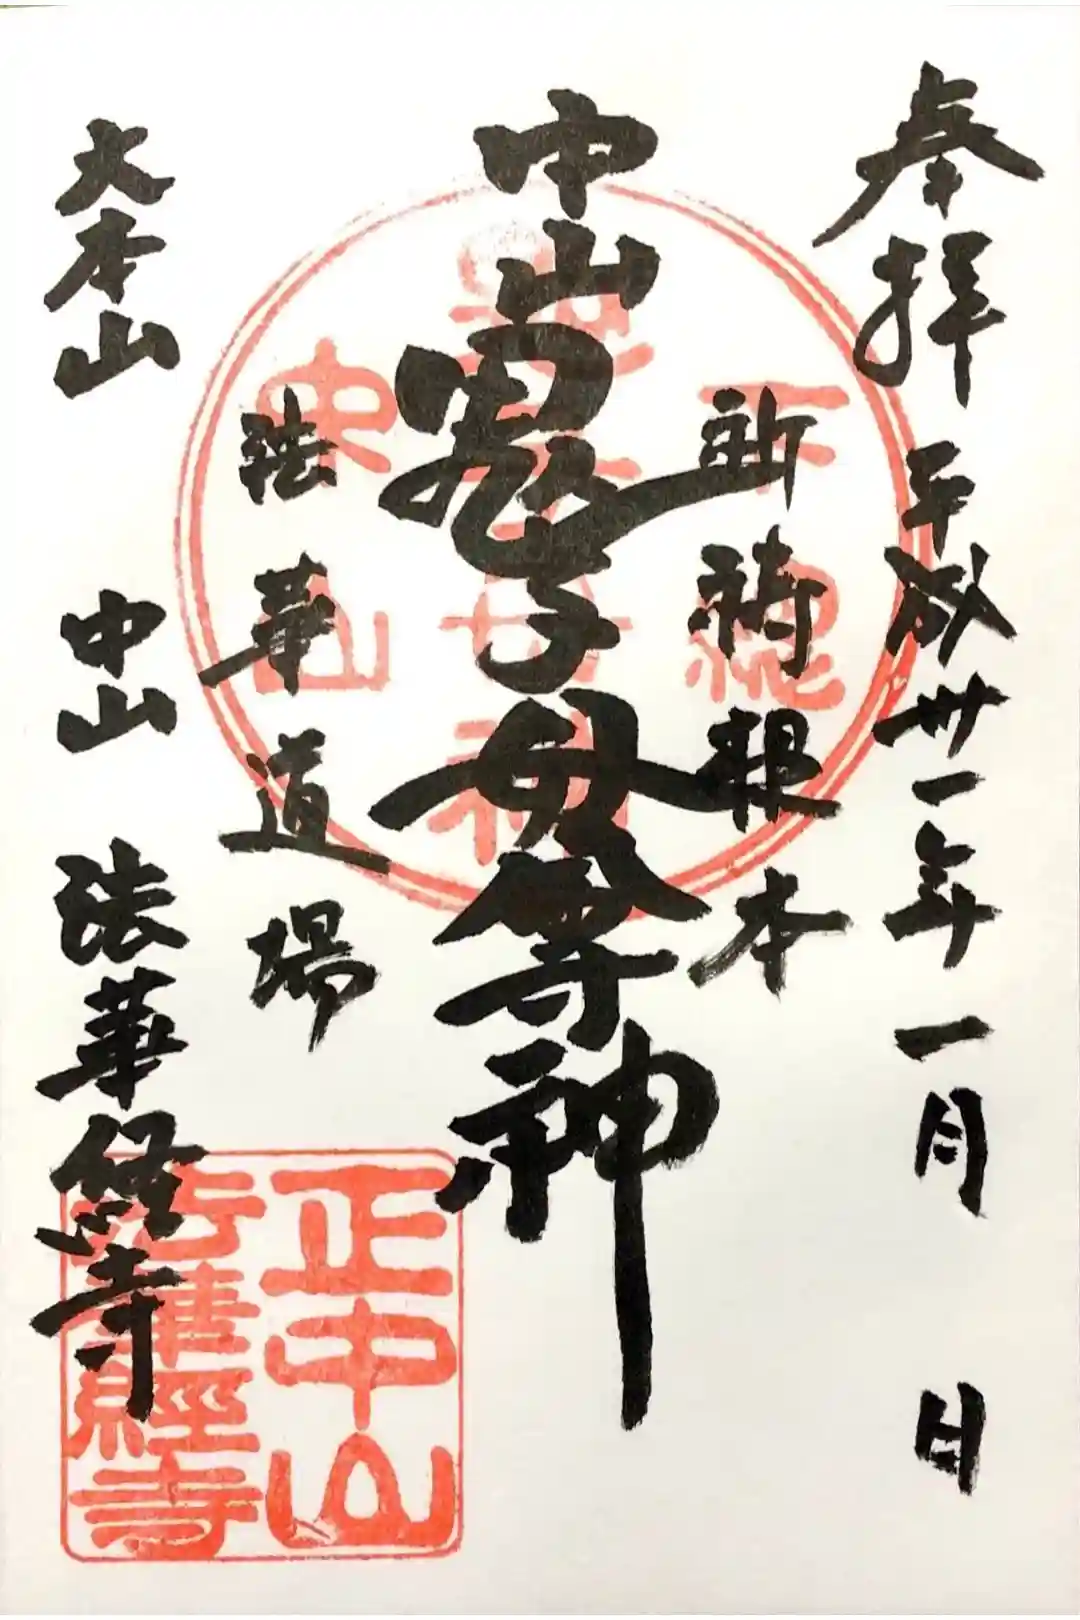 奉拝
平成卅一年一月 日
祈祷根本
中山鬼子母尊神
法華道場
大本山
中山 法華経寺
下總
鬼子母神
中山
正中山
法華經寺